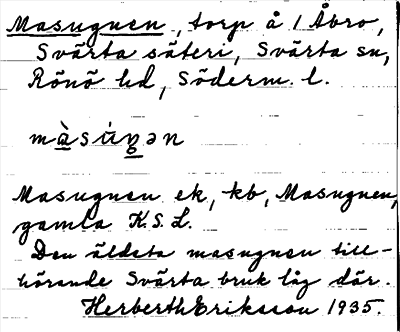 Masugnen, torp å 1 Åbro,
Svärta säteri, Svärta sn,
Rönö hd, Söderm. l.
màsúŋən
Masugnen ek, kb, Masugnen,
gamla K.S.L.
Den äldsta masugnen till-
hörande Svärta bruk låg där.
Herberth Eriksson 1935.